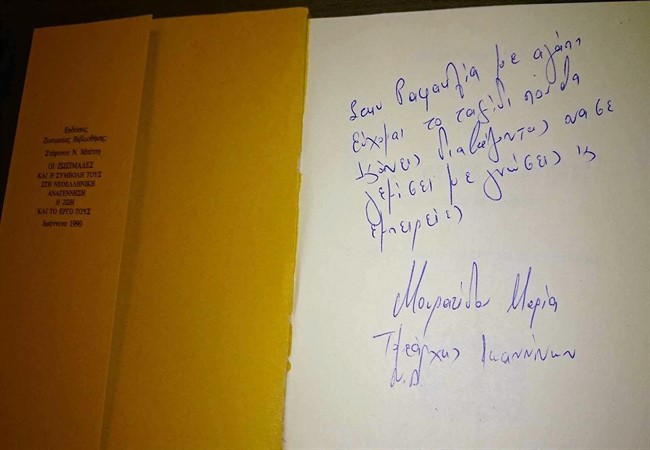 Εκδόσεις
Ζωσιμαίας Βιβλιοθήκης:
Στέφανος Ν. Μπέττη
ΟΙ ΖΩΣΙΜΑΔΕΣ
ΚΑΙ Η ΣΥΜΒΟΛΗ ΤΟΥΣ
ΣΤΗ ΝΕΟΕΛΛΗΝΙΚΗ
ΑΝΑΓΕΝΝΗΣΗ
Η ΖΩΗ
ΚΑΙ ΤΟ ΕΡΓΟ ΤΟΥΣ
Ιωάννινα 1990
Στην Ραφαηλία με αγάπη
Εύχομαι το ταξίδι που θα
κάνεις διαβάζοντας να σε
γεμίσει με γνώσεις κ
εμπειρίες
Μουρατίδου Μαρία
Ιωαννίνων
Ν.Δ